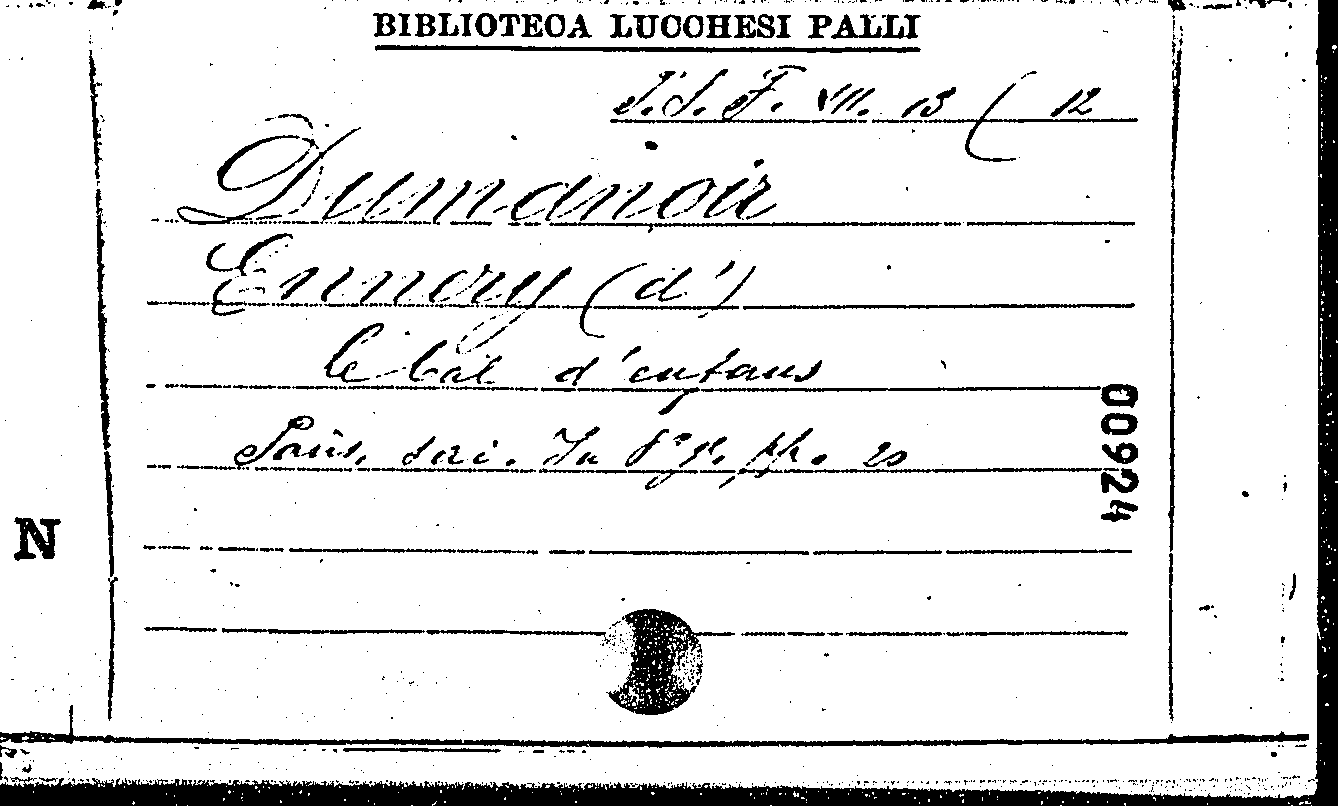 BIBLIOTECA LUCCHESI PALLI
F. VII. 13 ( 12
Dumanoir
Ennery (d')
le bal d'enfans
00924
Paris, In 8° gr. pp. 20
N